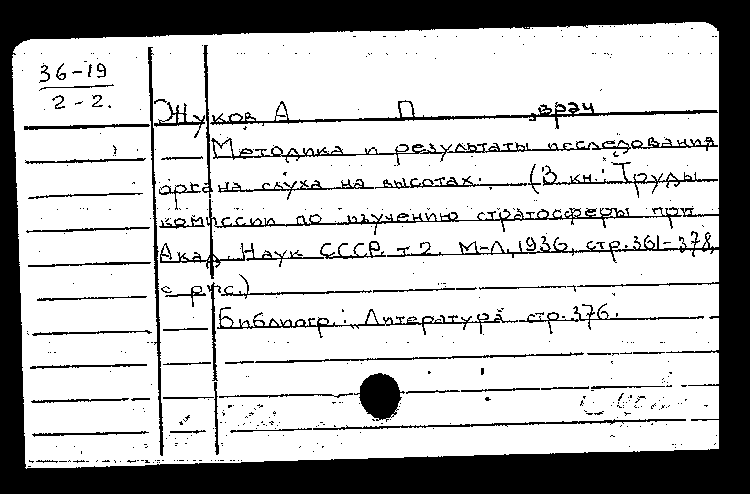 36-19
2-2.
Жуков, А П , врач
Методика и результаты исследования
органа слуха на высотах. (В кн.: Труды
комиссии по изучению стратосферы при
Акад. Наук СССР. т 2. М-Л., 1936, стр. 361-378,
с рис.)
Библиогр.: „Литература" стр. 376.